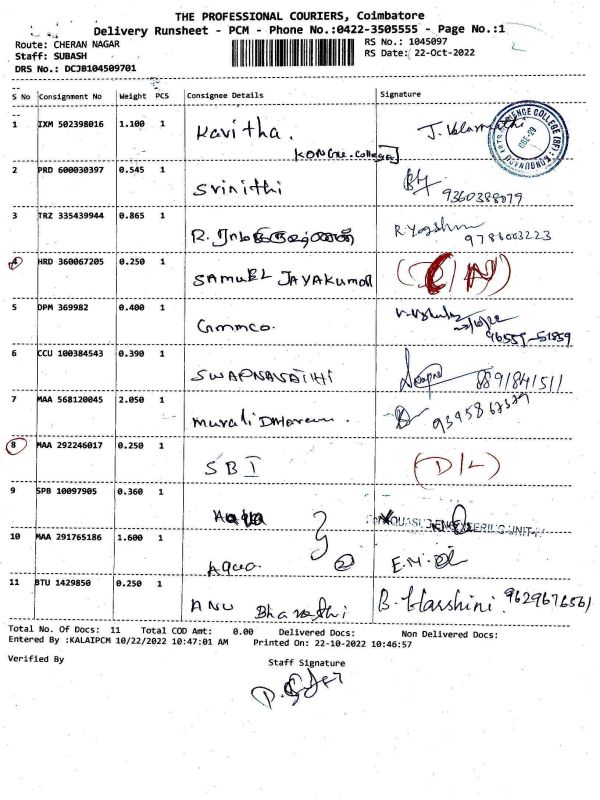 THE PROFESSIONAL COURIERS, Coimbatore
Delivery Runsheet - PCM - Phone No.:0422-3505555 - Page No.:1
Route: CHERAN NAGAR RS No.: 1045097
Staff: SUBASH RS Date: 22-Oct-2022
DRS No.: DCJB104509701
S No Consignment No Weight PCS Consignee Details Signature
1 IXM 502398016 1.100 1 Kavitha.
KONGU. College
2 PRD 600030397 0.545 1 Srinithi 9360388079
3 TRZ 335439944 0.865 1 R. 9786003223
4 HRD 360067205 0.250 1 SAMUEL JAYAKUMAR
5 DPM 369982 0.400 1 Cmmco.
6 CCU 100384543 0.390 1 SWAPNAVATHI 8891841511
7 MAA 568120045 2.050 1 Murali Dharan.
8 MAA 292246017 0.250 1 SBI (D/L)
9 SPB 10097905 0.360 1 Aqua
10 MAA 291765186 1.600 1 Aqua. 2 E.M.
11 BTU 1429850 0.250 1 ANU Bharathi B. Harshini. 9629676561
Total No. Of Docs: 11 Total COD Amt: 0.00 Delivered Docs: Non Delivered Docs:
Entered By :KALAIPCM 10/22/2022 10:47:01 AM Printed On: 22-10-2022 10:46:57
Verified By Staff Signature